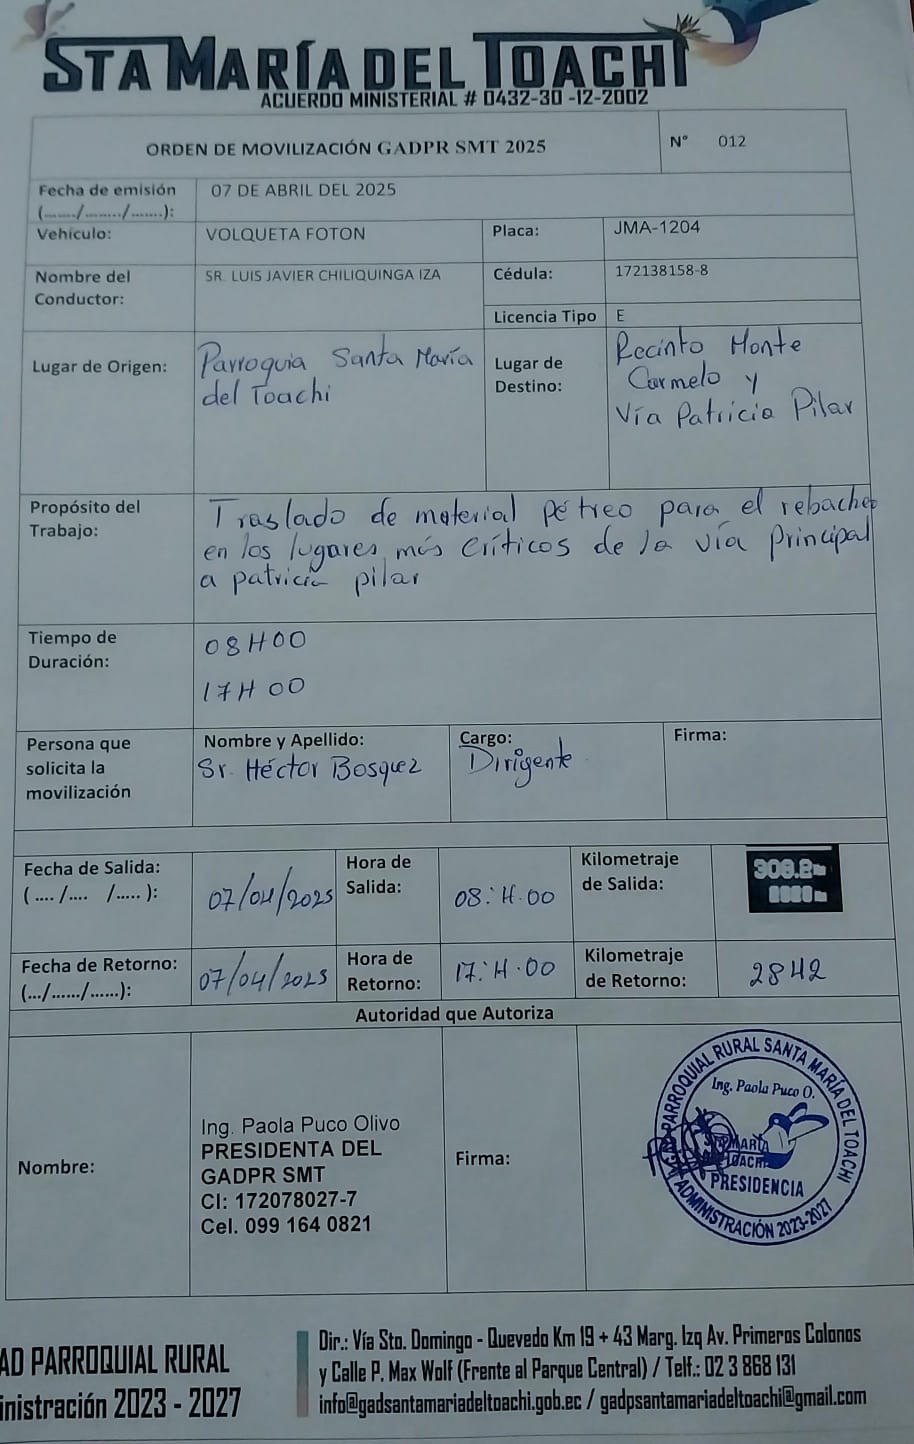 STA MARÍA DEL TOACHI
ACUERDO MINISTERIAL # 0432-30 -12-2002
ORDEN DE MOVILIZACIÓN GADPR SMT 2025
N° 012
Fecha de emisión
(......./......../.......):
07 DE ABRIL DEL 2025
Vehículo:
VOLQUETA FOTON
Placa:
JMA-1204
Nombre del
Conductor:
SR. LUIS JAVIER CHILIQUINGA IZA
Cédula:
172138158-8
Licencia Tipo
E
Lugar de Origen:
Parroquia Santa María
del Toachi
Lugar de
Destino:
Recinto Monte
Carmelo y
Vía Patricia Pilar
Propósito del
Trabajo:
Traslado de material pétreo para el rebacheo
en los lugares más críticos de la vía principal
a patricia pilar
Tiempo de
Duración:
08H00
17H00
Persona que
solicita la
movilización
Nombre y Apellido:
Sr. Héctor Bosquez
Cargo:
Dirigente
Firma:
Fecha de Salida:
( .... /.... /..... ):
07/04/2025
Hora de
Salida:
08:H.00
Kilometraje
de Salida:
Fecha de Retorno:
(.../....../......):
07/04/2025
Hora de
Retorno:
17:H.00
Kilometraje
de Retorno:
2842
Autoridad que Autoriza
Nombre:
Ing. Paola Puco Olivo
PRESIDENTA DEL
GADPR SMT
CI: 172078027-7
Cel. 099 164 0821
Firma:
PARROQUIAL RURAL SANTA MARÍA DEL TOACHI
Ing. Paola Puco O.
STA MARÍA
TOACHI
PRESIDENCIA
ADMINISTRACIÓN 2023-2027
AD PARROQUIAL RURAL
inistración 2023 - 2027
Dir.: Vía Sto. Domingo - Quevedo Km 19 + 43 Marg. Izq Av. Primeros Colonos
y Calle P. Max Wolf (Frente al Parque Central) / Telf.: 02 3 868 131
info@gadsantamariadeltoachi.gob.ec / gadpsantamariadeltoachi@gmail.com